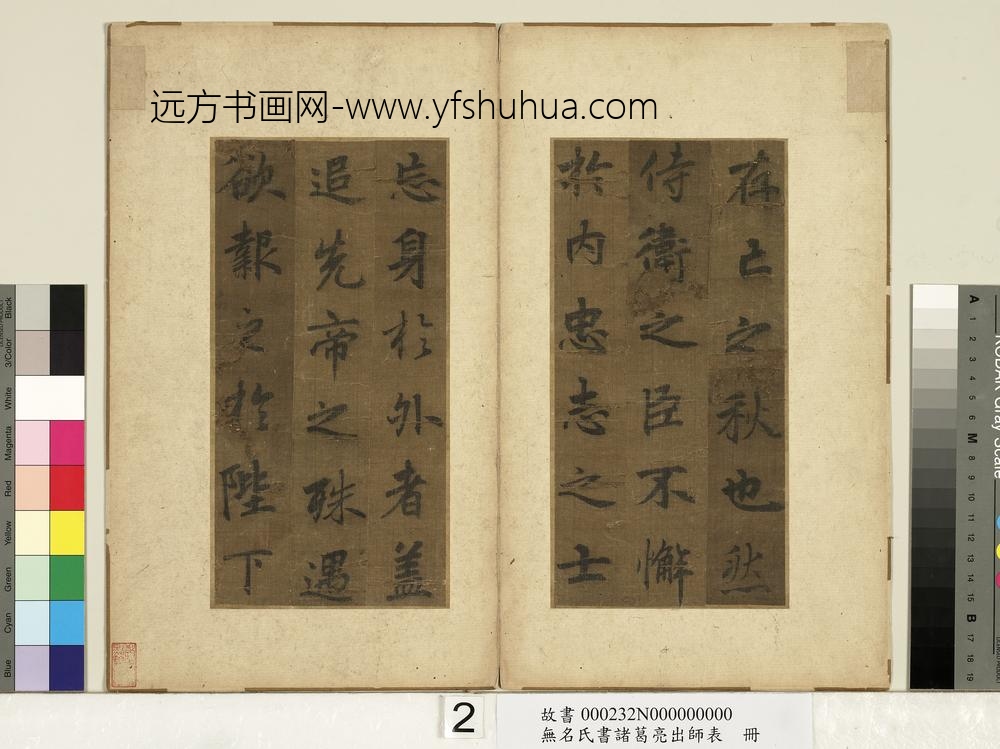 远方书画网-www.yfshuhua.com
存亡之秋也然
侍衛之臣不懈
於内忠志之士
忘身於外者盖
追先帝之殊遇
欲報之於陛下
2
故書 000232N000000000
無名氏書諸葛亮出師表 冊
Black
3/Color
White
Magenta
Red
Yellow
Green
Cyan
Blue
A
1
2
3
4
5
6
M
8
9
10
11
12
13
14
15
B
17
18
19
KODAK Gray Scale